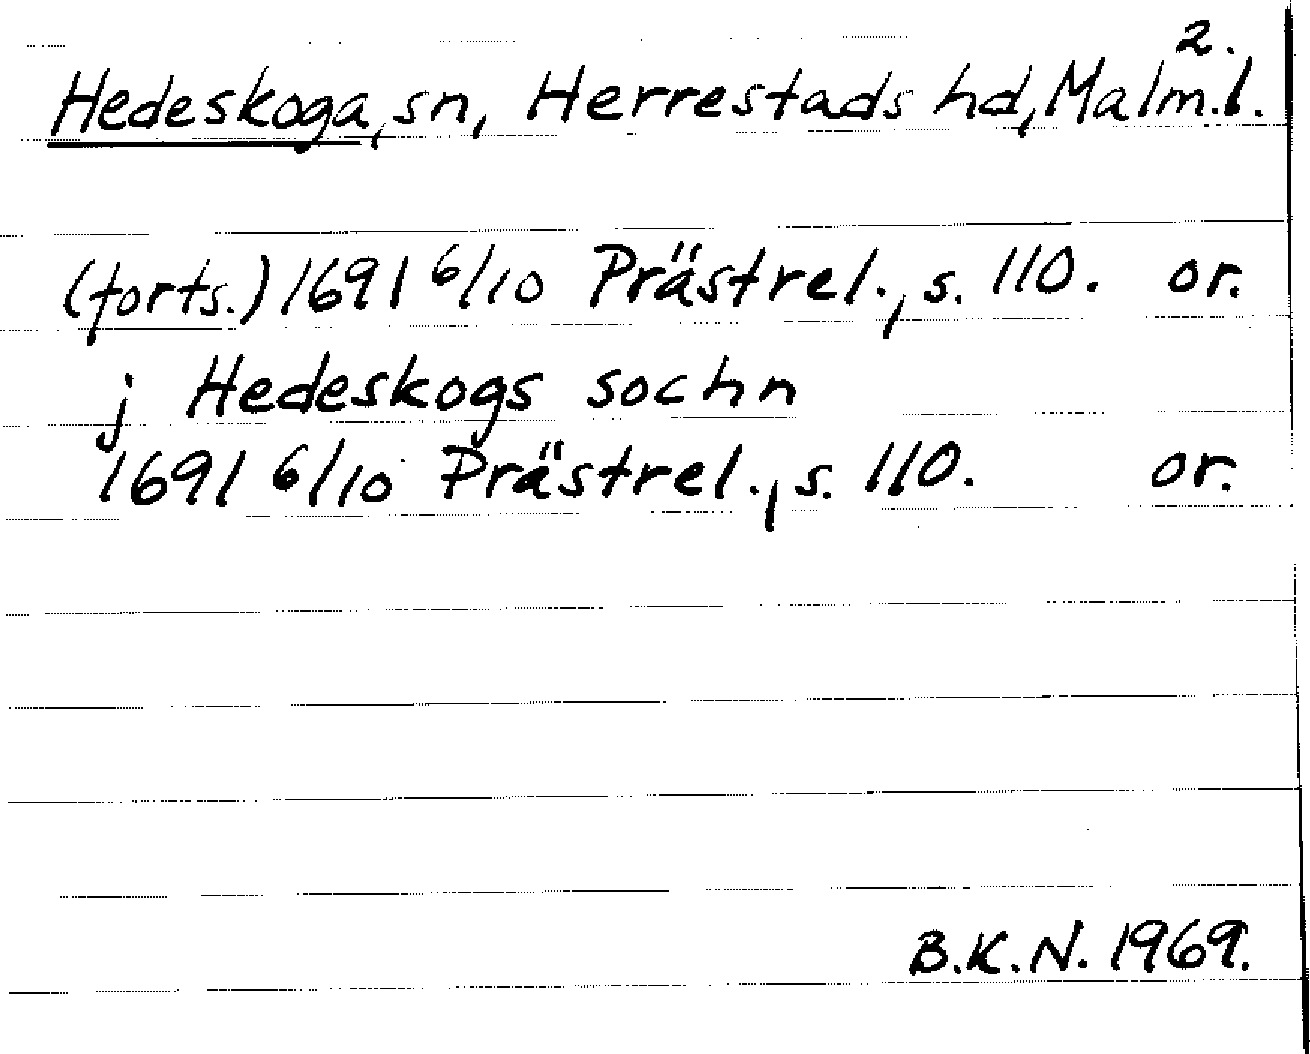 2.
Hedeskoga, sn, Herrestads hd, Malm.l.
(forts.) 1691 6/10 Prästrel., s. 110. or.
j Hedeskogs sochn
1691 6/10 Prästrel., s. 110. or.
B.K.N. 1969.